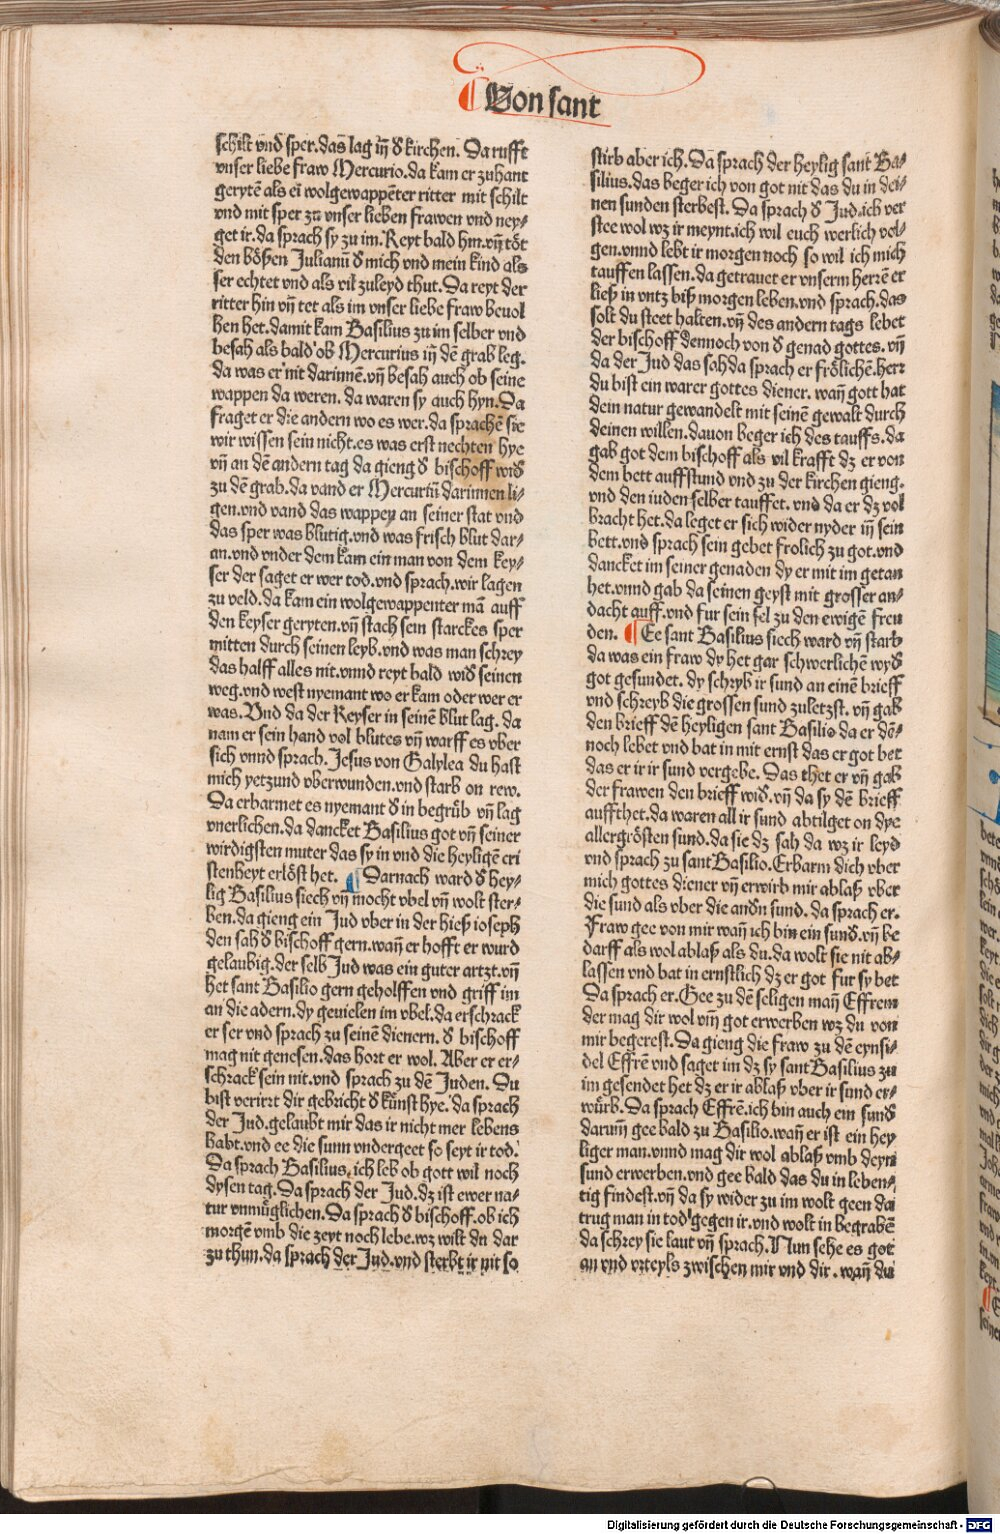 Von sant
schilt vnd sper.das lag in̄ d̕ kirchen. Da rufft
vnser liebe fraw Mercurio.da kam er zuhant
gerytē als ei wolgewappēter ritter mit schilt
vnd mit sper zu vnser lieben frawen vnd ney⸗
get ir.da sprach sy zu im.Reyt bald hin.vn̄ töt
den bößen Julianū d̕ mich vnd mein kind als
ser echtet vnd als vil zuleyd thut.Da reyt der
ritter hin vn̄ tet als im vnser liebe fraw beuol
hen het.damit kam Basilius zu im selber vnd
besah als bald ob Mercurius in̄ dē grab leg.
da was er nit darinnē.vn̄ besah auch ob seine
wappen da weren. da waren sy auch hyn.Da
fraget er die andern wo es wer.da sprachē sie
wir wissen sein nicht.es was erst nechten hye
vn̄ an dē andern tag da gieng d̕ bischoff wid̕
zu dē grab.da vand er Mercuriū darinnen li⸗
gen.vnd vand das wappen an seiner stat vnd
das sper was blutig.vnd was frisch blut dar⸗
an.vnd vnder dem kam ein man von dem key⸗
ser der saget er wer tod.vnd sprach.wir lagen
zu veld.da kam ein wolgewappenter mā auff
den keyser geryten.vn̄ stach sein starckes sper
mitten durch seinen leyb.vnd was man schrey
das halff alles nit.vnnd reyt bald wid̕ seinen
weg.vnd west nyemant wo er kam oder wer er
was.Vnd da der Keyser in seinē blut lag. da
nam er sein hand vol blutes vn̄ warff es vber
sich vnnd sprach.Jesus von Galylea du hast
mich yetzund vberwunden.vnd starb on rew.
Da erbarmet es nyemant d̕ in begrüb vn̄ lag
vnerlichen.da dancket Basilius got vn̄ seiner
wirdigsten muter das sy in vnd die heyligē cri
stenheyt erlöst het. ¶ Darnach ward d̕ hey⸗
lig Basilius siech vn̄ mocht vbel vn̄ wolt ster⸗
ben.da gieng ein Jud vber in der hieß ioseph
den sah d̕ bischoff gern.wan̄ er hofft er wurd
gelaubig.der selb Jud was ein guter artzt.vn̄
het sant Basilio gern geholffen vnd griff im
an die adern.dy geuielen im vbel.da erschrack
er ser vnd sprach zu seinē dienern. d̕ bischoff
mag nit genesen.das hort er wol. Aber er er⸗
schrack sein nit.vnd sprach zu dē Juden. Du
bist verirrt dir gebricht d̕ kunst hye. da sprach
der Jud.gelaubt mir das ir nicht mer lebens
habt.vnd ee die sunn vndergeet so seyt ir tod.
Da sprach Basilius.ich leb ob gott wil noch
dysen tag.Da sprach der Jud.dz ist ewer na⸗
tur vnmüglichen.Da sprach d̕ bischoff.ob ich
morgē vmb die zeyt noch lebe.wz wilt du dar
zu thun.da sprach der Jud.vnd sterbt ir nit so
stirb aber ich.Da sprach der heylig sant Ba⸗
silius.das beger ich von got nit das du in dei⸗
nen sunden sterbest. Da sprach d̕ Jud.ich ver
stee wol wz ir meynt.ich wil euch werlich vol⸗
gen.vnnd lebt ir morgen noch so wil ich mich
tauffen lassen.da getrauet er vnserm herrē er
ließ in vntz biß morgen leben.vnd sprach.das
solt du steet halten.vn̄ des andern tags lebet
der bischoff dennoch von d̕ genad gottes. vn̄
da der Jud das sah da sprach er frölichē.herr
du bist ein warer gottes diener. wan̄ gott hat
dein natur gewandelt mit seinē gewalt durch
deinen willen.dauon beger ich des tauffs.da
gab got dem bischoff als vil krafft dz er von
dem bett auffstund vnd zu der kirchen gieng.
vnd den iuden selber tauffet. vnd da er dz vol
bracht het.da leget er sich wider nyder in̄ sein
bett.vnd sprach sein gebet frolich zu got.vnd
dancket im seiner genaden dy er mit im getan
het.vnnd gab da seinen geyst mit grosser an⸗
dacht auff.vnd fur sein sel zu den ewigē freu
den. ¶ Ee sant Basilius siech ward vn̄ starb
da was ein fraw dy het gar schwerlichē wyd̕
got gesundet. dy schryb ir sund an einē brieff
vnd schreyb die grossen sund zuletzst. vn̄ gab
den brieff dē heyligen sant Basilio da er dē⸗
noch lebet vnd bat in mit ernst das er got bet
das er ir ir sund vergebe. Das thet er vn̄ gab
der frawen den brieff wid̕.vn̄ da sy dē brieff
auffthet.da waren all ir sund abtilget on dye
allergrösten sund.da sie dz sah da wz ir leyd
vnd sprach zu sant Basilio.Erbarm dich vber
mich gottes diener vn̄ erwirb mir ablaß vber
die sund als vber die andn̄ sund. da sprach er.
Fraw gee von mir wan̄ ich bin ein sund̕.vn̄ be
darff als wol ablaß als du.da wolt sie nit ab⸗
lassen vnd bat in ernstlich dz er got fur sy bet
Da sprach er.Gee zu dē seligen man̄ Effrem
der mag dir wol vm̄ got erwerben wz du von
mir begerest.Da gieng die fraw zu dē eynsi⸗
del Effrē vnd saget im dz sy sant Basilius zu
im gesendet het dz er ir ablaß vber ir sund er⸗
wurb.Da sprach Effrē.ich bin auch ein sund̕
darum̄ gee bald zu Basilio.wan̄ er ist ein hey
liger man.vnnd mag dir wol ablaß vmb deyn
sund erwerben.vnd gee bald das du in leben⸗
tig findest.vn̄ da sy wider zu im wolt geen da
trug man in tod gegen ir.vnd wolt in begrabē
da schrey sie laut vn̄ sprach.Nun sehe es got
an vnd vrteyls zwischen mir vnd dir.wan̄ du
Digitalisierung gefördert durch die Deutsche Forschungsgemeinschaft - DFG